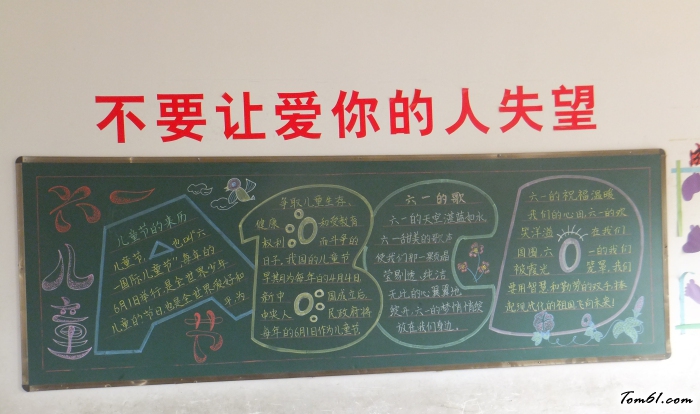 不要让爱你的人失望
六一
儿童
节
儿童节的来历
儿童节,也叫“六一
国际儿童节”,每年的
6月1日举行,是全世界少年
儿童的节日,也是全世界爱好和
平
争取儿童生存、
健康 和受教育
权利 而斗争的
日子,我国的儿童节
早期为每年的4月4日,
新中 国成立后,
中央人 民政府将
每年的6月1日作为儿童节
六一的歌
六一的天空湛蓝如水
六一甜美的歌声
使我们
无比的心翼翼地
六一的梦悄悄
放在我们身边。
六一的祝福温暖
我们的心田六一的欢
笑洋溢 在我们
周围,六 一的我们
被霞光 笼罩,我们
要用智慧和勤劳的双手捧
起现代化的祖国飞向未来!
Tom61.com